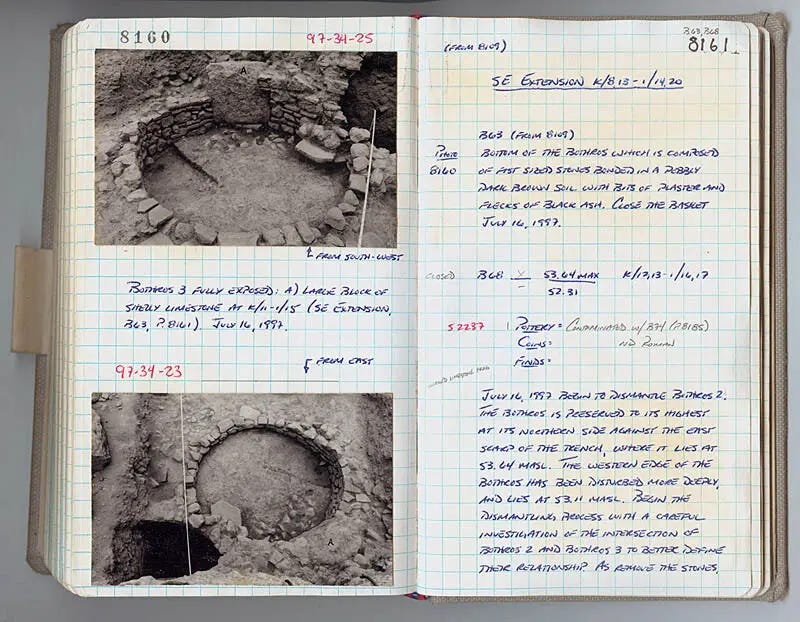 8160
97-34-25
A
↑ FROM SOUTH-WEST
BOTHROS 3 FULLY EXPOSED: A) LARGE BLOCK OF
SHELLY LIMESTONE AT K/11-1/15 (SE EXTENSION,
B63, P.8161) JULY 16, 1997.
↓ FROM EAST
97-34-23
A
B63, B68
8161
(FROM 8109)
SE EXTENSION K/8,13-1/14,20
B63 (FROM 8109)
PHOTO BOTTOM OF THE BOTHROS WHICH IS COMPOSED
8160 OF FIST SIZED STONES BONDED IN A PEBBLY
DARK BROWN SOIL WITH BITS OF PLASTER AND
FLECKS OF BLACK ASH. CLOSE THE BASKET
JULY 16, 1997.
CLOSED B68 53.64 MAX K/17,13-1/16,17
52.31
52237 1 POTTERY= CONTAMINATED W/B74 (P.8185)
COINS= ND ROMAN
FINDS=
JULY 16, 1997 BEGIN TO DISMANTLE BOTHROS 2.
THE BOTHROS IS PRESERVED TO ITS HIGHEST
AT ITS NORTHERN SIDE AGAINST THE EAST
SCARP OF THE TRENCH, WHERE IT LIES AT
53.64 MASL. THE WESTERN EDGE OF THE
BOTHROS HAS BEEN DISTURBED MORE DEEPLY,
AND LIES AT 53.11 MASL. BEGIN THE
DISMANTLING PROCESS WITH A CAREFUL
INVESTIGATION OF THE INTERSECTION OF
BOTHROS 2 AND BOTHROS 3 TO BETTER DEFINE
THEIR RELATIONSHIP. AS REMOVE THE STONES,